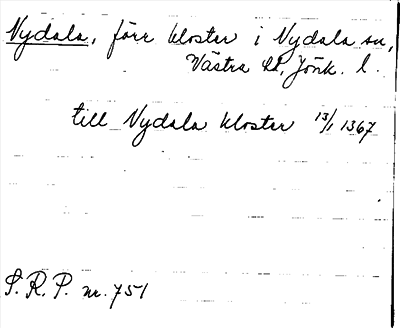 Nydala, förr kloster i Nydala sn,
Västra hd, Jönk. l.
till Nydala kloster 13/1 1367
S.R.P. nr. 751